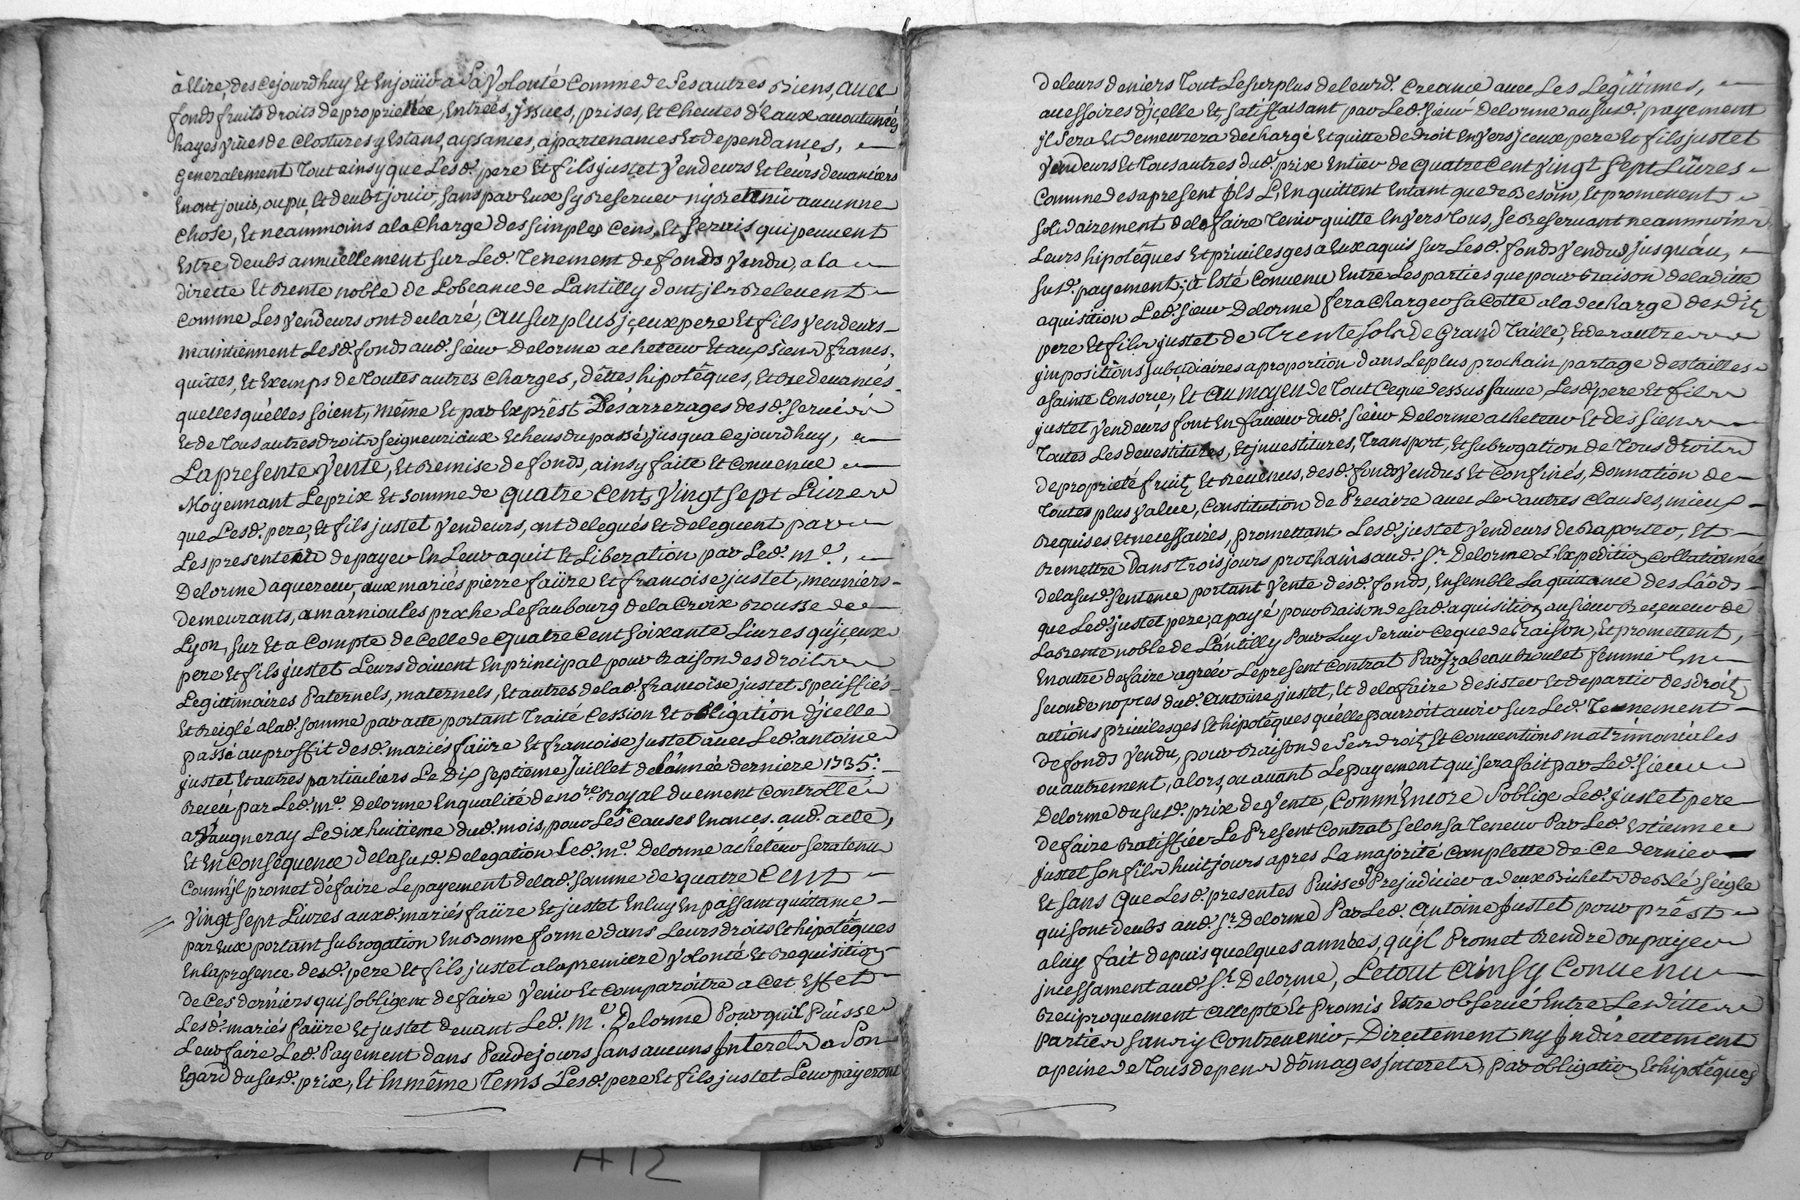 à Elire, des cejourdhuy Et En joüir a Sa Volonté Comme de Ses autres Biens, avec
fonds fruits droits de proprietée, Entrées, jssues, prises, Et Cheutes d'Eaux accoutumés
hayes vives de Clostures y Estans, aysances, apartenances Et dependances,
generalement Tout ainsy que Lesd. pere Et fils justet Vendeurs Et leurs devanciers
En ont jouis, ou pu, Et deubt jouir, sans par Eux Sy Reserver ny Retenir aucunne
Chose, Et neammoins a la Charge des simples Cens, Et Servis qui peuvent
Estre, deubs annuellement sur Led. Tenement de fonds Vendu, a la
directe Et Rente noble de Lobeance de Lantilly dont jls Relevent
Comme Les Vendeurs ont declaré, au surplus jceux pere Et fils Vendeurs
maintiennent Lesd. fonds aud. sieur Delorme acheteur Et aux siens francs,
quittes, Et Exemps de Toutes autres Charges, dêttes hipotêques, Et Redevancés
quelles quélles soient, même Et par Exprêst Des arrerages desd. servis
Et de Tous autres droits Seigneuriaux Echeus du passé jusqua cejourdhuy,
La presente Vente, Et Remise de fonds, ainsy faite Et Convenue
Moyennant Le prix Et somme de quatre Cent, Vingt sept Livres
que Lesd. pere, Et fils, justet Vendeurs, ont delegués Et deleguent par
Les presentes de payer En Leur aquit Et Liberation par Led. Me.
Delorme aquereur, aux mariés pierre faüre Et francoise justet, meuniers
demeurants, a marnioules proche Le faubourg de la Croix Rousse de
Lyon, sur Et a Compte de Celle de quatre Cent soixante Livres qu'jceux
pere Et fils justet Leurs doivent En principal pour Raison des droits
Legittimaires Paternels, maternels, Et autres de lad. francoise justet speciffiés
Et Reiglé a lad. somme par acte portant Traité Cession Et obligation d'jcelle
passé au proffit desd. mariés faüre Et francoise justet avec Led. antoine
justet, Et autres particuliers Le Dix septieme Juillet de L'année derniere 1735.
Receu par Led. Me. Delorme En qualité de nore. Royal duement Controllé
a Vaugneray Le dix huitieme dud. mois, pour Les Causes Enonces. aud. acte,
Et En Consequence de la susd. Delegation Led. Me. Delorme achéteur sera tenu
Comm'jl promet de faire Le payement de lad. somme de quatre Cent
Vingt sept Livres auxd. mariés faüre Et justet En luy En passant quittance
par Eux portant subrogation En Bonne forme dans Leurs droits Et hipotêques
En la presence desd. pere Et fils justet a la premiere Volonté Et Requisition
de Ces derniers qui sobligent de faire Venir Et comparoitre a Cet Effet
Lesd. mariés faüre Et justet devant Led. Me. Delorme Pour quil Puisse
Leur faire Led. Payement dans Peu de jours sans aucuns Interets a Son
Egard du susd. prix, Et En même Tems Lesd. pere Et fils justet Leur payeront
de leurs deniers Tout Le surplus de leurd. Creance avec Les Legitimes,
accessoires d'jcelle Et satisfaisant par Led. sieur Delorme au susd. payement
jl sera Et demeurera dechargé Et quitte de droit Envers jceux pere Et fils justet
Vendeurs Et Tous autres dud. prix Entier de quatre Cent Vingt sept Livres
Comme des apresent jls L'En quittent Entant que de Besoin, Et promettent
solidairement de le faire Tenir quitte Envers Tous, se Reservant neammoins
Leurs hipotêques Et privileges a Eux aquis sur Lesd. fonds Vendus jusquáu,
susd. payement; a Esté Convenu Entre Les parties que pour Raison de laditte
aquisition Led. sieur Delorme fera Charger sa Cotte a la decharge desdits
pere Et fils justet de Trente sols de Grand Taille, Et des autres
jmpositions subsidiaires a proportion dans Le plus prochain partage des tailles
a sainte Consorce, Et au moyen de Tout Ce que dessus sauve Lesd. pere Et fils
justet Vendeurs font En faveur dud. sieur Delorme acheteur Et des siens
Toutes Les devestitures, Et jnvestitures, Transport, Et subrogation de Tous droits
de propriété fruits Et Revenus, desd. fonds Vendus Et Confinés, Donnation de
Toutes plus Value, Constitution de Precaire avec Les autres Clauses, mieux
Requises Et necessaires, promettant Lesd. justet Vendeurs de Raporter, Et
Remettre Dans Trois jours prochains aud. Sr. Delorme L'Expedition Collationnée
de la susd. sentence portant Vente desd. fonds, Ensemble La quittance des Laods
que Led. justet pere, a payé pour Raison de sad. aquisition au sieur Receveur de
La Rente noble de Lántilly Pour Luy Servir Ce que de Raison, Et promettent,
En outre de faire agréer Le present Contrat Par Jzabeau Roulet femme En
seconde nopces dud. antoine justet, Et de la faire desister Et departir des droits
actions privileges Et hipotêques qu'elle pourroit avoir sur Led. Tennement
de fonds Vendu, pour Raison de Ses droits Et Conventions matrimoniales
ou autrement, alors, ou avant Le payement qui sera fait par Led. sieur
Delorme du susd. prix de Vente, Comm'Encore S'oblige Led. justet pere
de faire Ratiffier Le Present Contrat selon sa Teneur Par Led. Estienne
justet son fils huit jours apres La majorité Complette de Ce dernier
Et sans que Lesd. presentes Puisse Prejudicier a deux Bichets de Blé seigle
qui sont deubs aud. Sr. Delorme Par Led. antoine Justet pour prêst
a luy fait depuis quelques années, qu'jl Promet Rendre ou payer
jncessament aud. Sr. Delorme, Le tout ainsy Convenu
Reciproquement accepté Et Promis Estre observé Entre Lesdittes
Parties sans y Contrevenir, Directement ny Jndirectement
a peine de Tous depens dômages Interets, par obligation Et hipotêques
A12